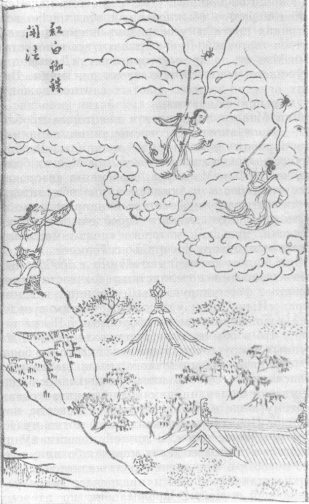 紅白蜘蛛
閗法